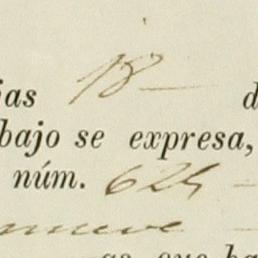 ias 18 d
bajo se expresa,
núm. 624
nueve